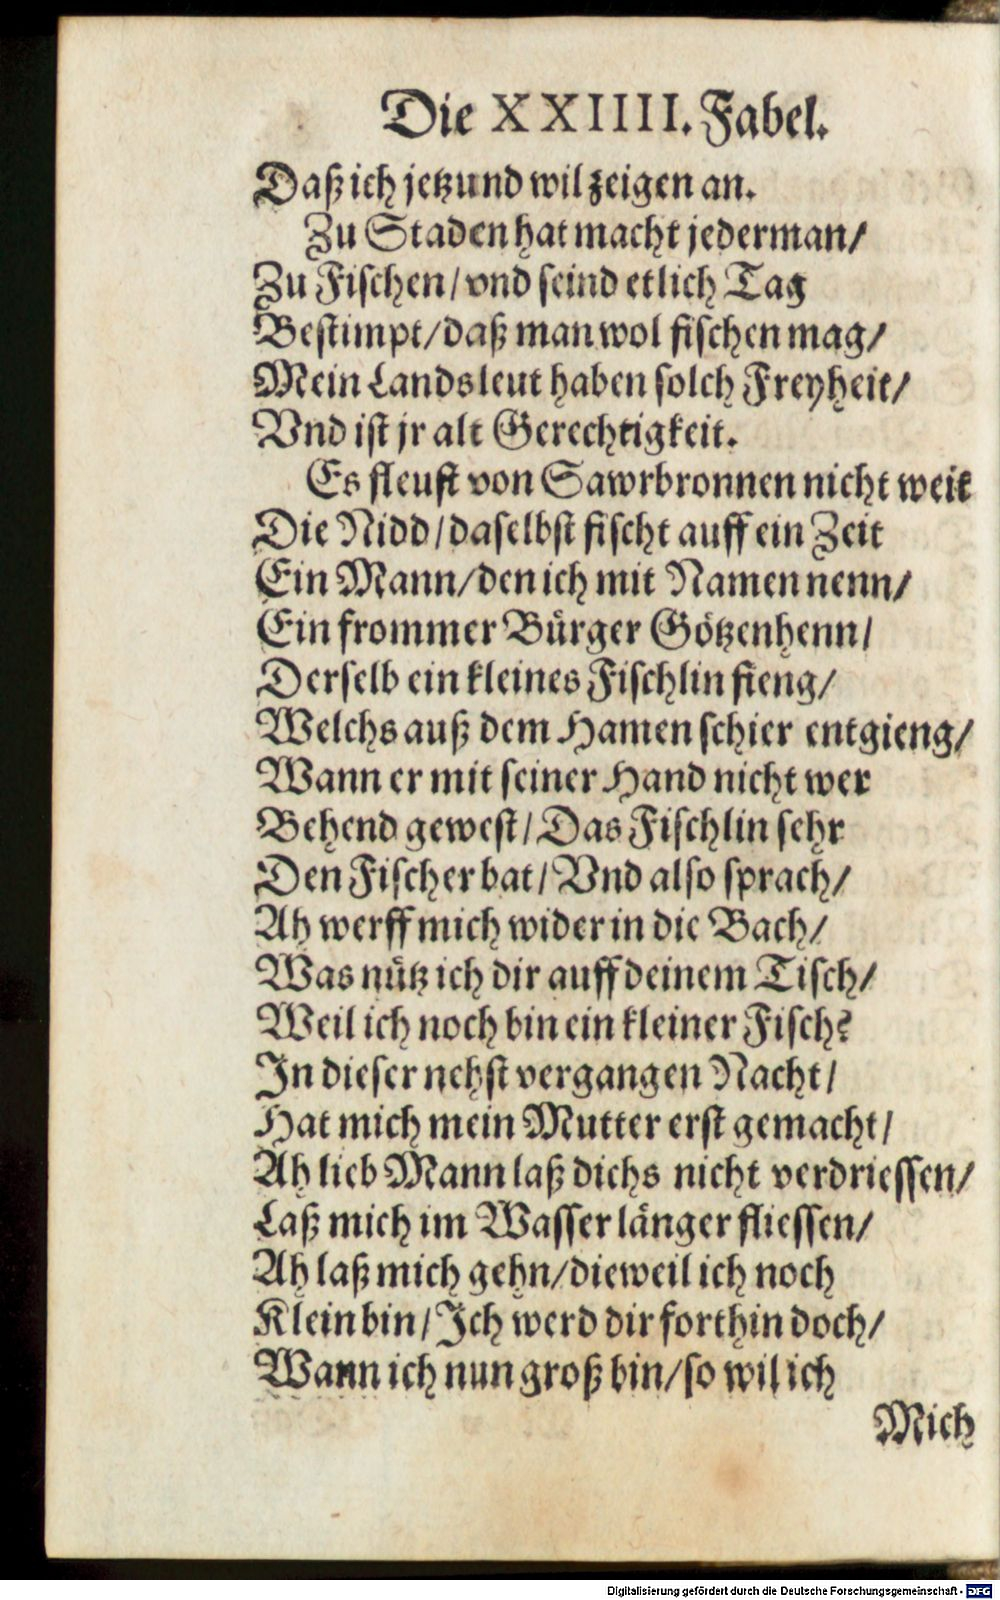 Die XXIIIII. Fabel.
Daß ich jetzund wil zeigen an.
Zu Staden hat macht jederman/
Zu Fischen/ vnd seind etlich Tag
Bestimpt/ daß man wol fischen mag/
Mein Landsleut haben solch Freyheit/
Vnd ist jr alt Gerechtigkeit.
Es fleust von Sawrbronnen nicht weit
Die Nidd/ daselbst fischt auff ein Zeit
Ein Mann/ den ich mit Namen nenn/
Ein frommer Bürger Götzenhenn/
Derselb ein kleines Fischlin fieng/
Welchs auß dem Hamen schier entgieng/
Wann er mit seiner Hand nicht wer
Behend gewest/ Das Fischlin sehr
Den Fischer bat/ Vnd also sprach/
Ah werff mich wider in die Bach/
Was nütz ich dir auff deinem Tisch/
Weil ich noch bin ein kleiner Fisch?
In dieser nehst vergangen Nacht/
Hat mich mein Mutter erst gemacht/
Ah lieb Mann laß dichs nicht verdriessen/
Laß mich im Wasser länger fliessen/
Ah laß mich gehn/ dieweil ich noch
Klein bin/ Ich werd dir forthin doch/
Wann ich nun groß bin/ so wil ich
Mich
Digitalisierung gefördert durch die Deutsche Forschungsgemeinschaft - DFG